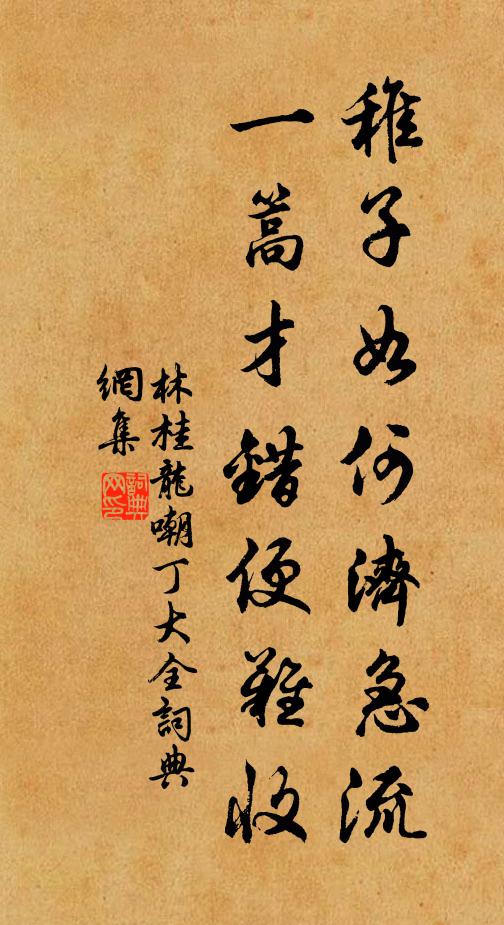 稚子如何濟急流
一篙才錯便難收
林桂龍嘲丁大全詞典
網集
詞典
网印